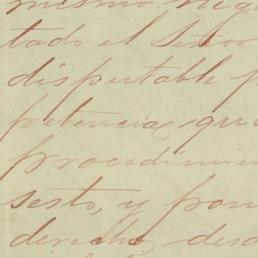 mismo neg
tado el Señor
disputable p
petencia, qu
procedimien
sesto, y pron
derecho, desd